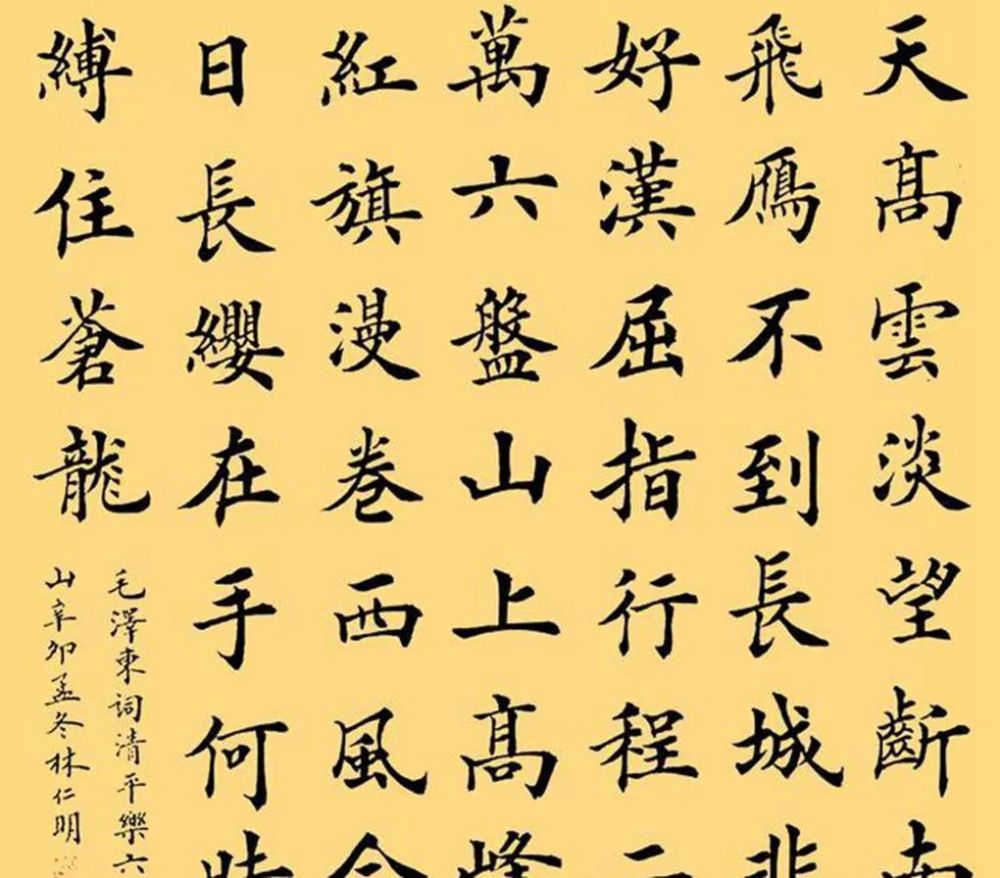 天髙雲淡望斷南
飛鴈不到長城非
好漢屈指行程二
萬六盤山上髙峰
紅旗漫卷西風今
日長纓在手何時
縛住蒼龍
毛澤東詞清平樂六
山辛卯孟冬林仁明